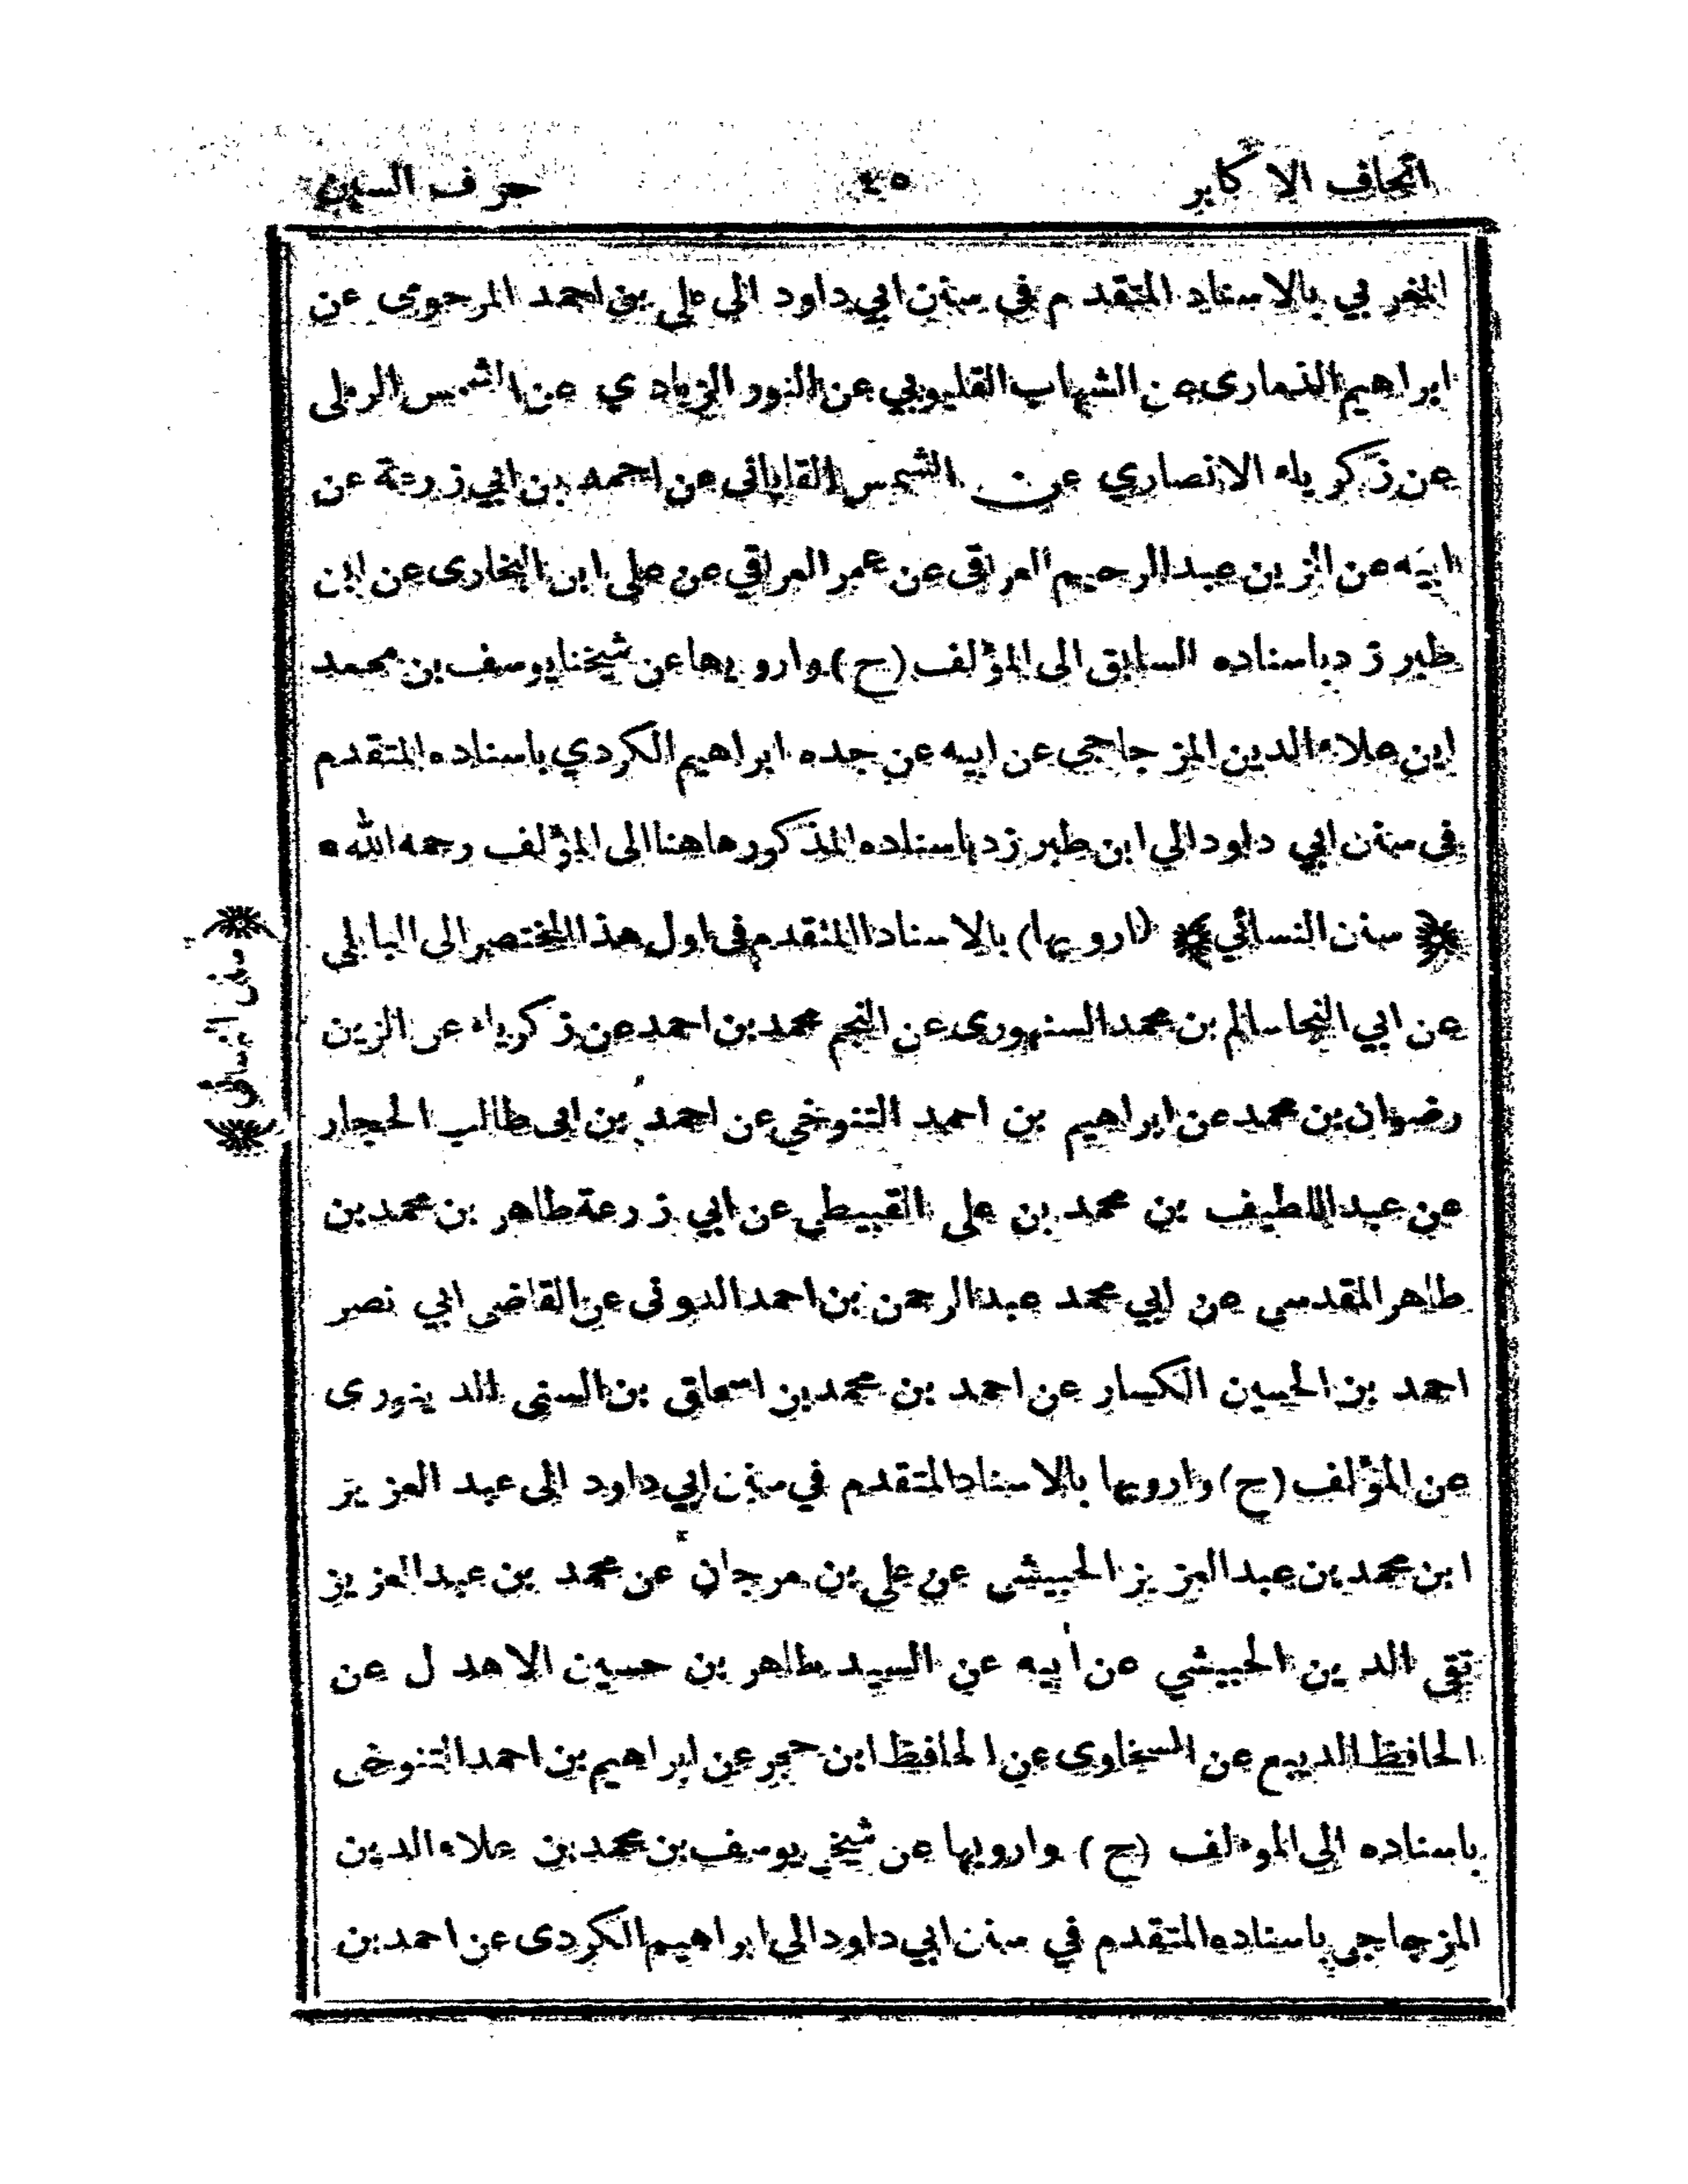 اتحاف الاكابر ٤٥ حرف السين
المغربي بالاسناد المتقدم في سنن ابي داود الى علي بن احمد المرحومى عن
ابراهيم الذمارى عن الشهاب القليوبي عن النور الزيادي عن الشمس الرملى
عن زكرياء الانصاري عن الشمس القاياتى عن احمد بن ابي زرعة عن
ابيه عن الزين عبد الرحيم العراقى عن عمر العراقي عن علي ابن البخارى عن ابن
طبرزد باسناده السابق الى المؤلف (ح) وارويها عن شيخنا يوسف بن محمد
ابن علاء الدين المزجاجى عن ابيه عن جده ابراهيم الكردي باسناده المتقدم
فى سنن ابي داود الي ابن طبرزد باسناده المذكور هاهنا الى المؤلف رحمه الله
سنن النسائي (ارويها) بالاسناد المتقدم فى اول هذا المختصر الى البابلي
عن ابي النجا سالم بن محمد السنهورى عن النجم محمد بن احمد عن زكرياء عن الزين
رضوان بن محمد عن ابراهيم بن احمد التنوخي عن احمد بن ابى طالب الحجار
عن عبد اللطيف بن محمد بن علي القبيطى عن ابي زرعة طاهر بن محمد بن
طاهر المقدسى عن ابي محمد عبد الرحمن بن احمد الدونى عن القاضى ابي نصر
احمد بن الحسين الكسار عن احمد بن محمد بن اسحاق بن السنى الدينورى
عن المؤلف (ح) وارويها بالاسناد المتقدم في سنن ابي داود الى عبد العزيز
ابن محمد بن عبد العزيز الحبيشى عن علي بن مرجان عن محمد بن عبد العزيز
تقى الدين الحبيشي عن أبيه عن السيد طاهر بن حسين الاهدل عن
الحافظ الديبع عن السخاوى عن الحافظ ابن حجر عن ابراهيم بن احمد التنوخى
باسناده الى المؤلف (ح) وارويها عن شيخي يوسف بن محمد بن علاء الدين
المزجاجى باسناده المتقدم في سنن ابي داود الي ابراهيم الكردى عن احمد بن
سنن النسائى